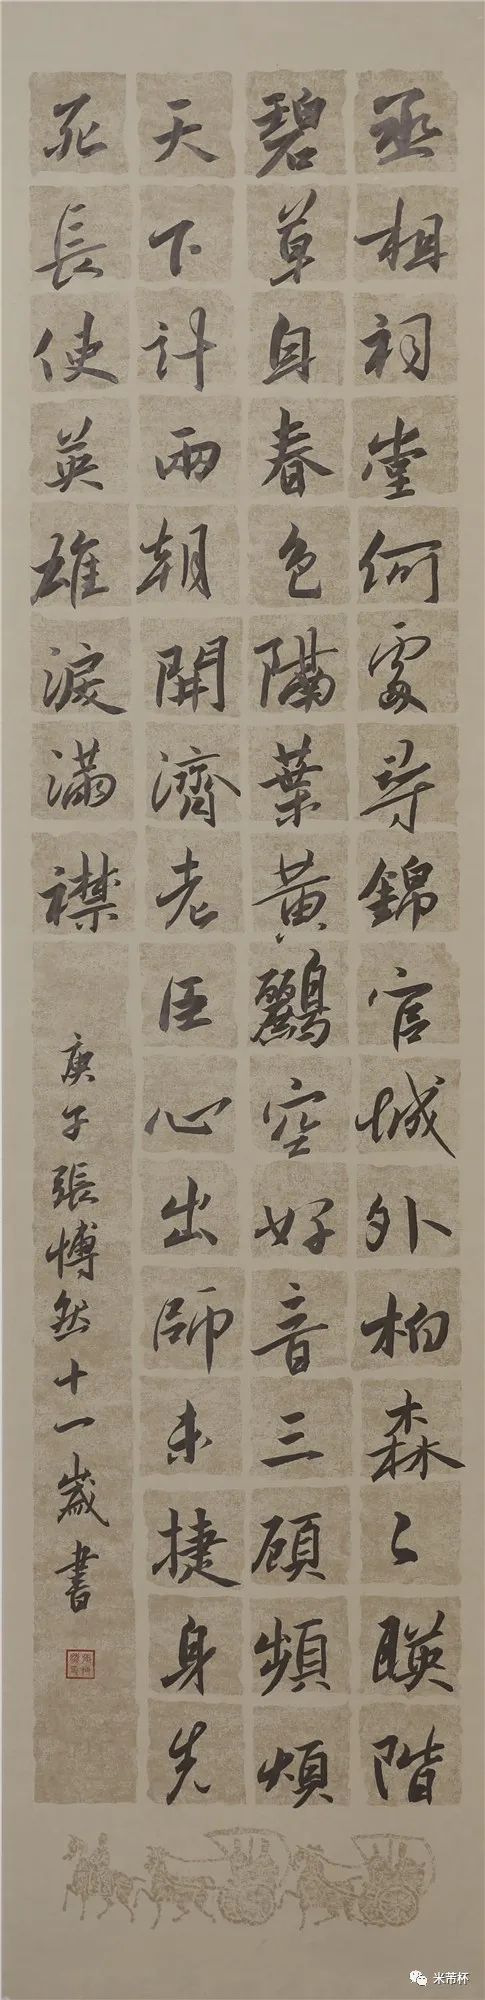 丞相祠堂何處尋錦官城外柏森〻暎階
碧草自春色隔葉黃鸝空好音三顧頻煩
天下計兩朝開濟老臣心出師未捷身先
死長使英雄淚滿襟
庚子張愽然十一歲書
米芾杯